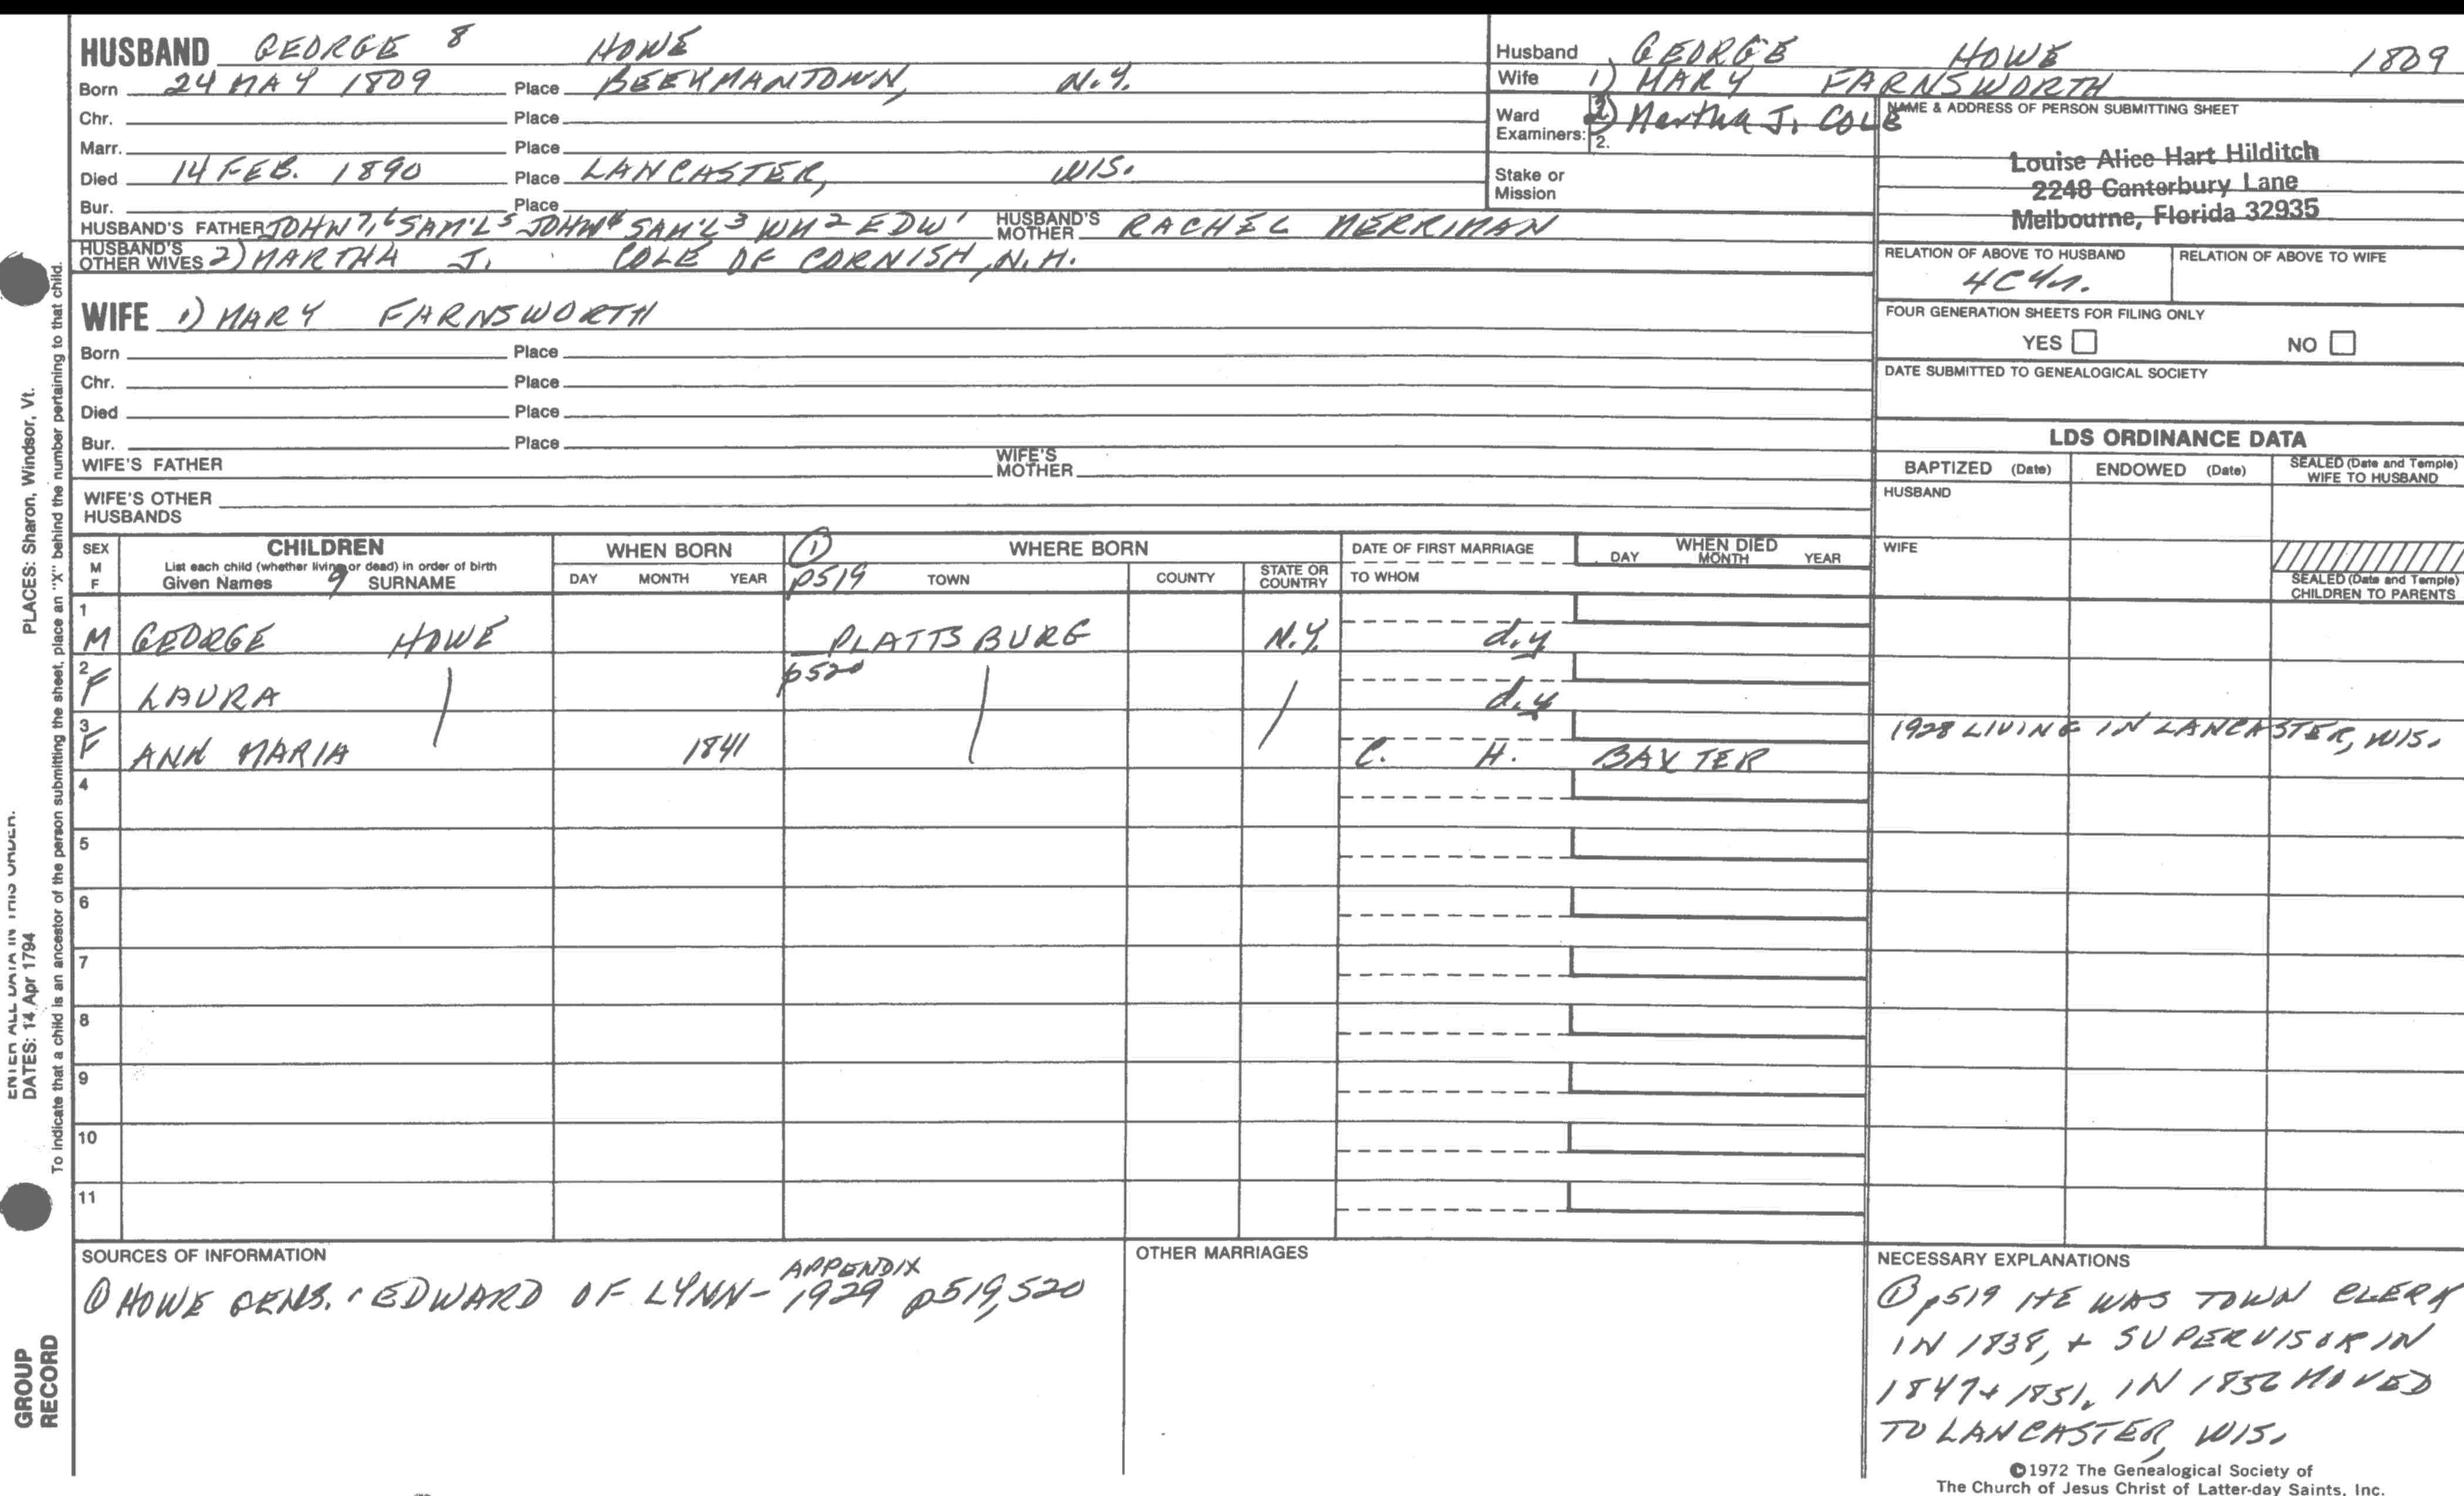 HUSBAND GEORGE 8 HOWE
Born 24 MAY 1809 Place BEEKMANTOWN, N.Y.
Chr. Place
Marr. Place
Died 14 FEB. 1890 Place LANCASTER, WIS.
Bur. Place
HUSBAND'S FATHER JOHN 7,6 SAM'L 5 JOHN 4 SAM'L 3 WM 2 EDW 1 HUSBAND'S MOTHER RACHEL MERRIMAN
HUSBAND'S OTHER WIVES 2) MARTHA J. COLE OF CORNISH, N.H.
Husband GEORGE HOWE 1809
Wife 1) MARY FARNSWORTH
Ward 2) Martha J. COLE
Examiners: 2.
Stake or
Mission
NAME & ADDRESS OF PERSON SUBMITTING SHEET
Louise Alice Hart Hilditch
2248 Canterbury Lane
Melbourne, Florida 32935
RELATION OF ABOVE TO HUSBAND RELATION OF ABOVE TO WIFE
4C4r.
FOUR GENERATION SHEETS FOR FILING ONLY
YES NO
DATE SUBMITTED TO GENEALOGICAL SOCIETY
WIFE 1) MARY FARNSWORTH
Born Place
Chr. Place
Died Place
Bur. Place
WIFE'S FATHER WIFE'S MOTHER
WIFE'S OTHER
HUSBANDS
LDS ORDINANCE DATA
BAPTIZED (Date) ENDOWED (Date) SEALED (Date and Temple)
WIFE TO HUSBAND
HUSBAND
WIFE
SEALED (Date and Temple)
CHILDREN TO PARENTS
SEX
M
F
CHILDREN
List each child (whether living or dead) in order of birth
Given Names 9 SURNAME
WHEN BORN
DAY MONTH YEAR
1 WHERE BORN
p519 TOWN COUNTY STATE OR COUNTRY
DATE OF FIRST MARRIAGE
TO WHOM
WHEN DIED
DAY MONTH YEAR
1
M GEORGE HOWE PLATTSBURG N.Y. d.y
2 p520
F LAURA d.y
3
F ANN MARIA 1841 C. H. BAXTER 1928 LIVING IN LANCASTER, WIS.
4
5
6
7
8
9
10
11
SOURCES OF INFORMATION
① HOWE GENS. : EDWARD OF LYNN - APPENDIX 1929 p519,520
OTHER MARRIAGES
NECESSARY EXPLANATIONS
① p519 HE WAS TOWN CLERK
IN 1838, + SUPERVISOR IN
1847 + 1851. IN 1856 MOVED
TO LANCASTER, WIS.
©1972 The Genealogical Society of
The Church of Jesus Christ of Latter-day Saints, Inc.
PLACES: Sharon, Windsor, Vt.
ENTER ALL DATA IN THIS ORDER.
DATES: 14 Apr 1794
To indicate that a child is an ancestor of the person submitting the sheet, place an "X" behind the number pertaining to that child.
GROUP
RECORD